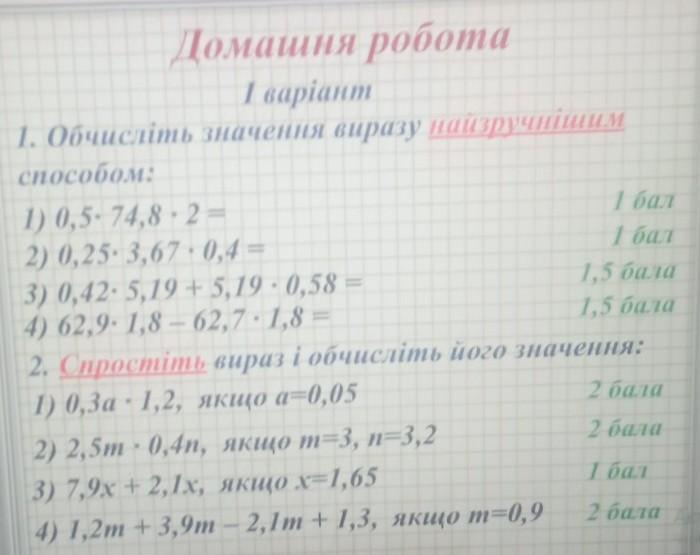 Домашня робота
І варіант
1. Обчисліть значення виразу найзручнішим
способом:
1) 0,5· 74,8 · 2 = 1 бал
2) 0,25· 3,67 · 0,4 = 1 бал
3) 0,42· 5,19 + 5,19 · 0,58 = 1,5 бала
4) 62,9· 1,8 – 62,7 · 1,8 = 1,5 бала
2. Спростіть вираз і обчисліть його значення:
1) 0,3а · 1,2, якщо а=0,05 2 бала
2) 2,5m · 0,4n, якщо m=3, n=3,2 2 бала
3) 7,9х + 2,1х, якщо х=1,65 1 бал
4) 1,2m + 3,9m – 2,1m + 1,3, якщо m=0,9 2 бала